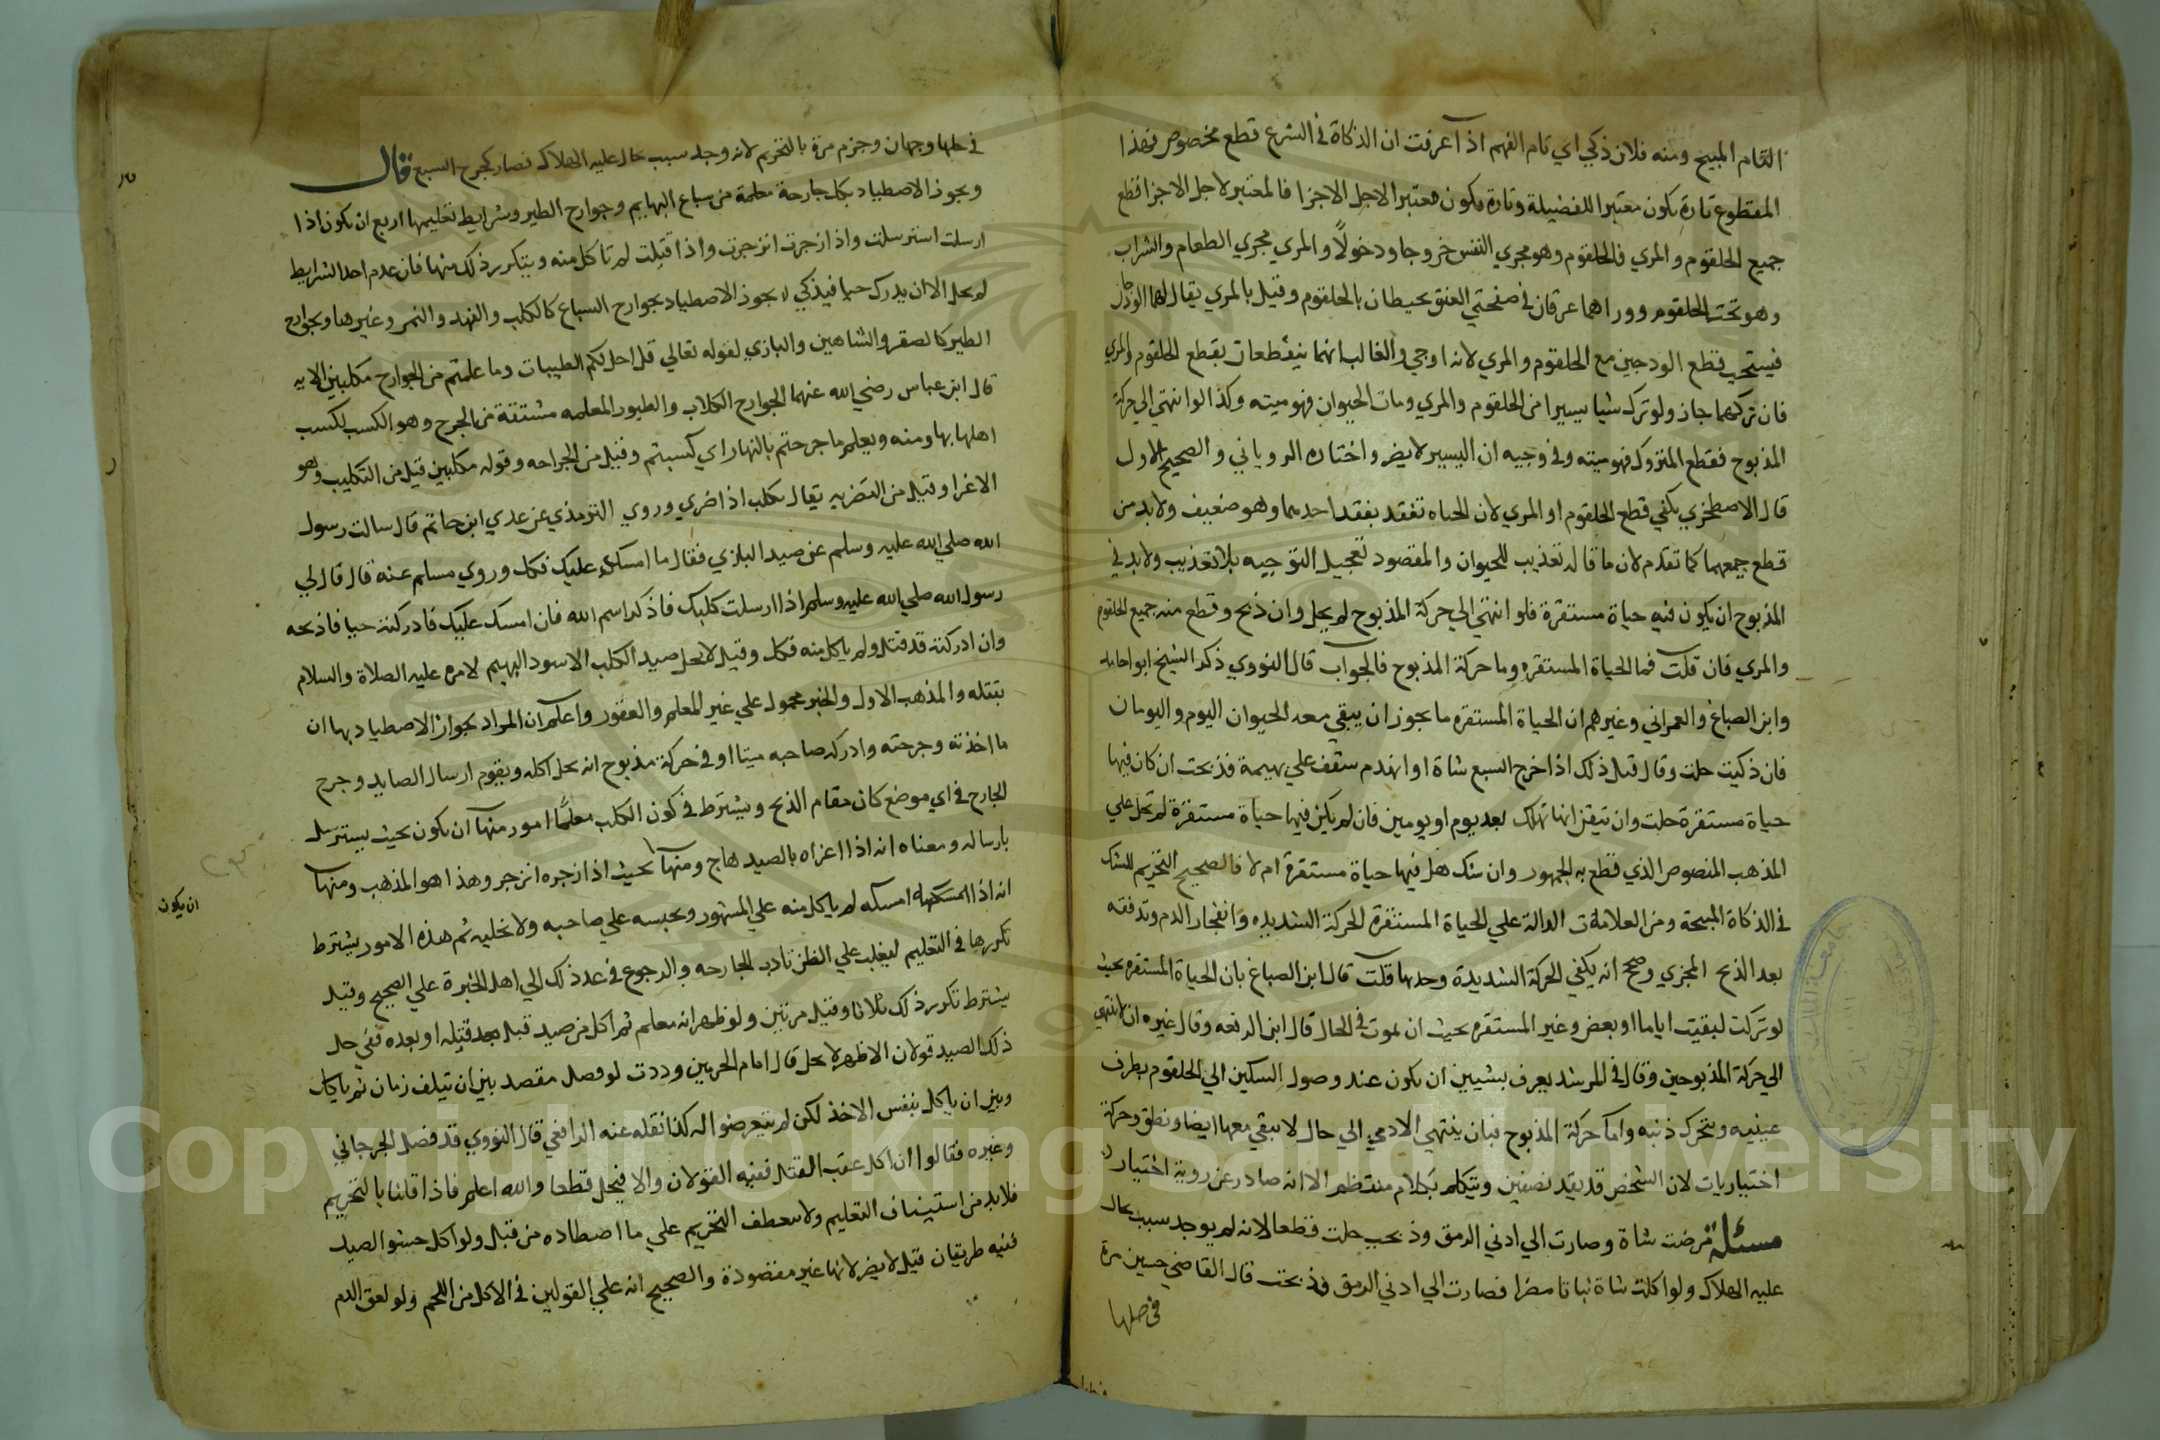 التمام المبيح ومنه فلان ذكي اي تام الفهم اذا عرفت ان الذكاة في الشرع قطع مخصوص فهذا
المقطوع تارة يكون معتبرا للفضيلة وتارة يكون معتبرا لاجل الاجزا فالمعتبر لاجل الاجزا قطع
جميع الحلقوم والمري فالحلقوم وهو مجري النفس خروجا ودخولاً والمري مجري الطعام والشراب
وهو تحت الحلقوم ووراهما عرقان في صفحتي العنق يحيطان بالحلقوم وقيل بالمري يقال لهما الودجان
فيستحب قطع الودجين مع الحلقوم والمري لانه اوحي والغالب انهما ينقطعان بقطع الحلقوم والمري
فان تركهما جاز ولو ترك شيا يسيرا من الحلقوم والمري ومات الحيوان فهو ميته وكذا لو انتهي الي حركة
المذبوح فقطع المتروك فهو ميته وفي وجيه ان اليسير لا يضر واختاره الروياني والصحيح الاول
قال الاصطخري يكفي قطع الحلقوم او المري لان الحياه تفقد بفقد احدهما وهو ضعيف ولا بد من
قطع جميعهما كما تقدم لان ما قاله تعذيب للحيوان والمقصود تعجيل التوجيه بلا تعذيب ولا بد في
المذبوح ان يكون فيه حياة مستقرة فلو انتهي الي حركة المذبوح لم يحل وان ذبح وقطع منه جميع الحلقوم
والمري فان قلت فما الحياة المستقره وما حركة المذبوح فالجواب قال النووي ذكر الشيخ ابو حامد
وابن الصباغ والعمراني وغيرهم ان الحياة المستقره ما يجوز ان يبقي معه الحيوان اليوم واليومان
فان ذكيت حلت وقال قبل ذلك اذا جرح السبع شاة او انهدم سقف علي بهيمة فذبحت ان كان فيها
حياة مستقرة حلت وان تيقن انها تهلك بعد يوم او يومين فان لم يكن فيها حياة مستقرة لم تحل علي
المذهب المنصوص الذي قطع به الجمهور وان شك هل فيها حياة مستقرة ام لا فالصحيح التحريم للشك
في الذكاة المبيحة ومن العلامات الدالة علي الحياة المستقرة الحركة الشديده وانفجار الدم وتدفقه
بعد الذبح المجزي وصحح انه يكفي الحركة الشديدة وحدها قلت قال ابن الصباغ بان الحياة المستقره بحيث
لو تركت لبقيت اياما او بعض وغير المستقره بحيث ان يموت في الحال قال ابن الرفعه وقال غيره ان لا تنتهي
الي حركة المذبوحين وقال في المرشد يعرف بشيين ان يكون عند وصول السكين الي الحلقوم يطرف
عينيه ويتحرك ذنبه واما حركة المذبوح فبان ينتهي الادمي الي حال لا يبقي معها ايضا ونطق وحركة
اختياريات لان الشخص قد يقد نصفين ويتكلم بكلام منتظم الا انه صادر عن روية اختيار
مسئلة مرضت شاة وصارت الي ادني الرمق وذبحت حلت قطعا لانه لم يوجد سبب يحال
عليه الهلاك ولو اكلت شاة نباتا مضرا فصارت الي ادني الرمق فذبحت قال القاضي حسين مرة
في حلها
في حلها وجهان وجزم مرة بالتحريم لانه وجد سبب يحال عليه الهلاك فصار كجرح السبع قال
ويجوز الاصطياد بكل جارحة معلمة من سباع البهايم وجوارح الطير وشرايط تعليمها اربع ان يكون اذا
ارسلت استرسلت واذا زجرت انزجرت واذا قتلت لم تاكل منه ويتكرر ذلك منها فان عدم احد الشرايط
لم يحل الا ان يدرك حيا فيذكي يجوز الاصطياد بجوارح السباع كالكلب والفهد والنمر وغيرها وبجوارح
الطير كالصقر والشاهين والبازي لقوله تعالي قل احل لكم الطيبات وما علمتم من الجوارح مكلبين الايه
قال ابن عباس رضي الله عنهما الجوارح الكلاب والطيور المعلمه مشتقة من الجرح وهو الكسب لكسب
اهلها بها ومنه ويعلم ما جرحتم بالنهار اي كسبتم وقيل من الجراحه وقوله مكلبين قيل من التكليب وهو
الاغرا وقيل من التضريه يقال كلب اذا ضري وروي الترمذي عن عدي ابن حاتم قال سالت رسول
الله صلي الله عليه وسلم عن صيد البازي فقال ما امسك عليك فكل وروي مسلم عنه قال قال لي
رسول الله صلي الله عليه وسلم اذا ارسلت كلبك فاذكر اسم الله فان امسك عليك فادركته حيا فاذبحه
وان ادركته قد قتل ولم ياكل منه فكل وقيل لا يحل صيد الكلب الاسود البهيم لامره عليه الصلاة والسلام
بقتله والمذهب الاول والخبر محمول علي غير المعلم والعقور واعلم ان المراد بجواز الاصطياد بها ان
ما اخذته وجرحته وادركه صاحبه ميتا او في حركة مذبوح انه يحل اكله ويقوم ارسال الصايد وجرح
الجارح في اي موضع كان مقام الذبح ويشترط في كون الكلب معلمًا امور منها ان يكون بحيث يسترسل
بارساله ومعناه انه اذا اغراه بالصيد هاج ومنها بحيث اذا زجره انزجر وهذا هو المذهب ومنها
ان يكون
انه اذا امسكه لم ياكل منه علي المشهور ويحبسه علي صاحبه ولا يخليه ثم هذه الامور يشترط
تكررها في التعليم ليغلب علي الظن تادب الجارحه والرجوع في عدد ذلك الي اهل الخبرة علي الصحيح وقيل
يشترط تكرر ذلك ثلاثا وقيل مرتين ولو ظهر انه معلم ثم اكل من صيد قبل قتله او بعده ففي حل
ذلك الصيد قولان الاظهر لا يحل قال امام الحرمين وددت لو فصل مفصل بين ان يتلف زمان ثم ياكل
وبين ان ياكل بنفس الاخذ لكن لم يتعرضوا له كذا نقله عنه الرافعي قال النووي قد فصل الجرجاني
وغيره فقالوا ان اكل عقب القتل ففيه القولان والا فيحل قطعا والله اعلم فاذا قلنا بالتحريم
فلا بد من استيناف التعليم ولا ينعطف التحريم علي ما اصطاده من قبل ولو اكل حشو الصيد
ففيه طريقان قيل لا يضر لانها غير مقصودة والصحيح انه علي القولين في الاكل من اللحم ولو لعق الدم
Copyright © King Saud University